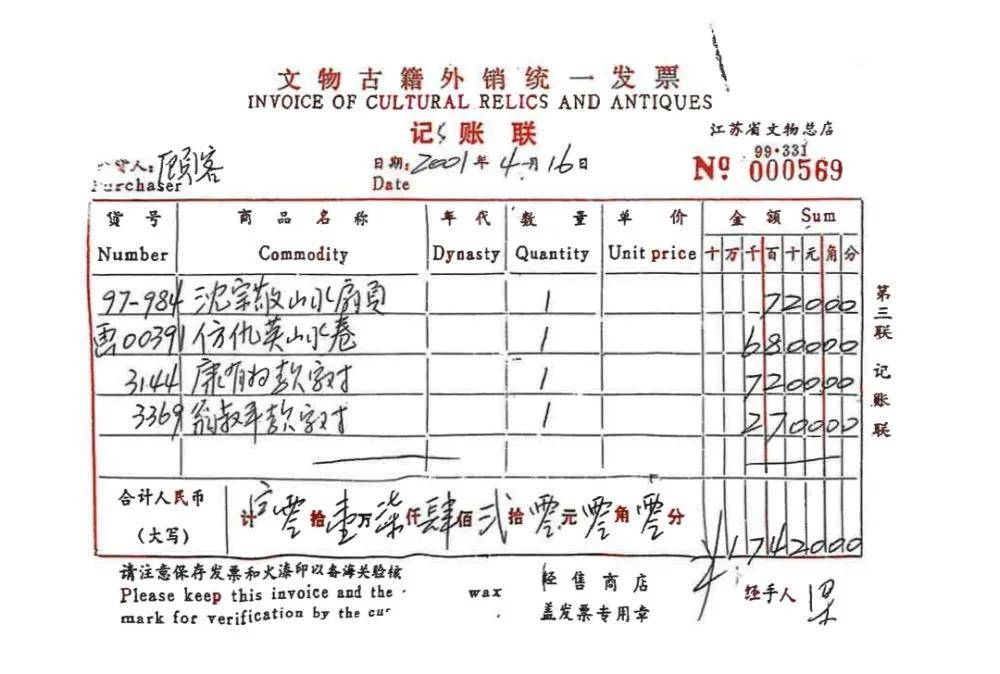 文物古籍外销统一发票
INVOICE OF CULTURAL RELICS AND ANTIQUES
记账联
江苏省文物总店
货人：顾客
Purchaser
日期：2001年4月16日
Date
99·331
No 000569
货号 商品名称 年代 数量 单价 金额 Sum
Number Commodity Dynasty Quantity Unit price 十万千百十元角分
97-984 沈宗敬山水扇页 1 72000
画00391 仿仇英山水卷 1 680000
3144 康有为款字对 1 720000
3369 翁叔平款字对 1 270000
合计人民币
（大写）
计 零拾壹万柒仟肆佰贰拾零元零角零分 ¥1742000
第三联 记账联
请注意保存发票和火漆印以备海关验核
Please keep this invoice and the wax
mark for verification by the cus
经售商店
盖发票专用章
经手人